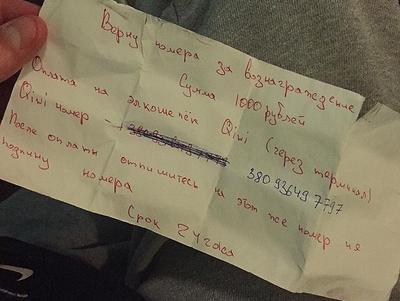 Верну номера за вознаграждение
Сумма 1000 рублей
Оплата на элкошелёк Qiwi (через терминал)
Qiwi номер – 380 93649 7797
После оплаты отпишитесь на этот же номер и я
подкину номера
Срок 24 часа